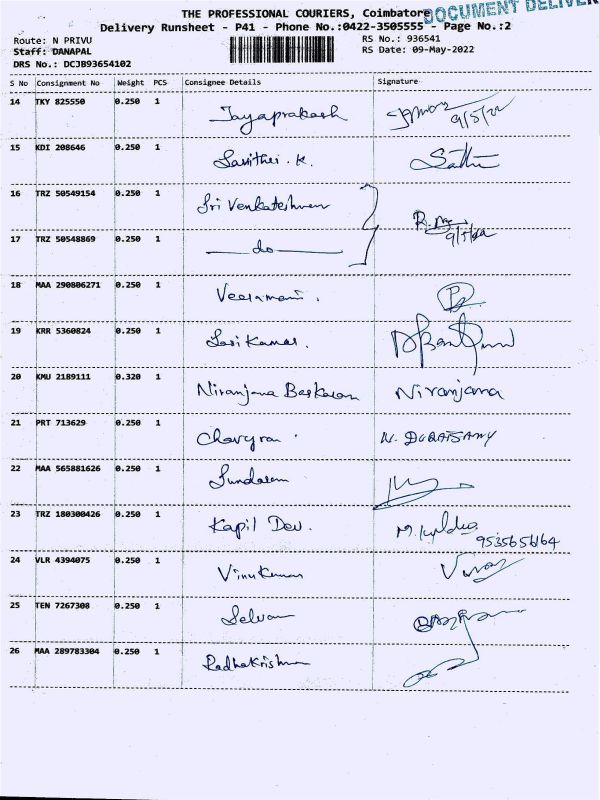 THE PROFESSIONAL COURIERS, Coimbatore
DOCUMENT DELIVER
Delivery Runsheet - P41 - Phone No.:0422-3505555 - Page No.:2
Route: N PRIVU RS No.: 936541
Staff: DANAPAL RS Date: 09-May-2022
DRS No.: DCJB93654102
S No Consignment No Weight PCS Consignee Details Signature
14 TKY 825550 0.250 1 Jayaprakash 9/5/22
15 KDI 208646 0.250 1 Savithri. K.
16 TRZ 50549154 0.250 1 Sri Venkateshwera
17 TRZ 50548869 0.250 1 do 9/5/22
18 MAA 290806271 0.250 1 Veeramani.
19 KRR 5360824 0.250 1 Sasi Kumar.
20 KMU 2189111 0.320 1 Niranjana Baskaran Niranjana
21 PRT 713629 0.250 1 N. DURAISAMY
22 MAA 565881626 0.250 1 Sundaram
23 TRZ 180300426 0.250 1 Kapil Dev. 9535656164
24 VLR 4394075 0.250 1 Vinukumar
25 TEN 7267308 0.250 1 Selvam
26 MAA 289783304 0.250 1 Radhakrishna